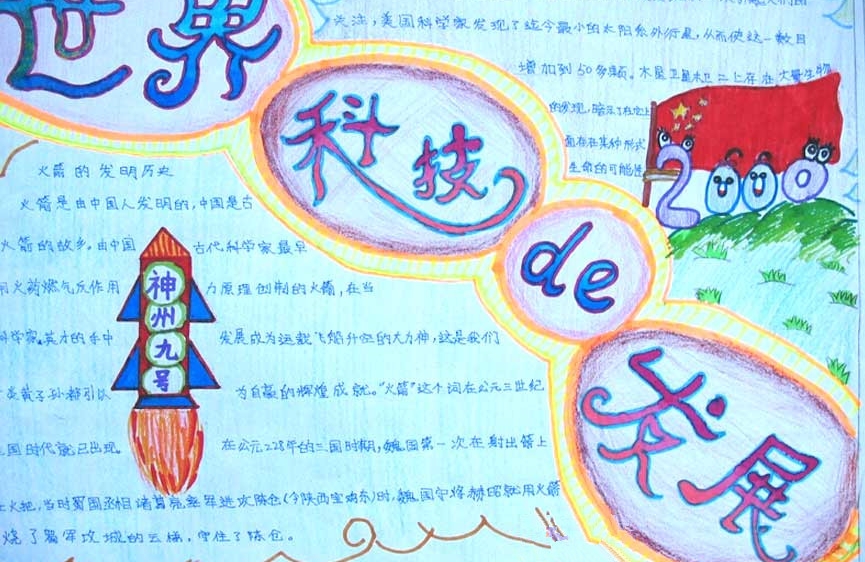 世界
科技
de
发展
关注，美国科学家发现了迄今最小的太阳系外行星，从而使这一数目
增加到50多颗。木星卫星木卫二上存在大量生物
的发现，暗示了在它上
面存在某种形式
生命的可能性
2000
火箭的发明历史
火箭是由中国人发明的，中国是古
火箭的故乡。由中国古代科学家最早
用火药燃气反作用力原理创制的火箭，在当
科学家。英才的手中发展成为运载飞船升空的大力神，这是我们
炎黄子孙都引以为自豪的辉煌成就。“火箭”这个词在公元三世纪
三国时代就已出现。在公元228年的三国时期，魏国第一次在射出箭上
火把，当时蜀国丞相诸葛亮率军进攻陈仓（今陕西宝鸡东）时，魏国守将郝昭就用火箭
烧了蜀军攻城的云梯，守住了陈仓。
神州九号